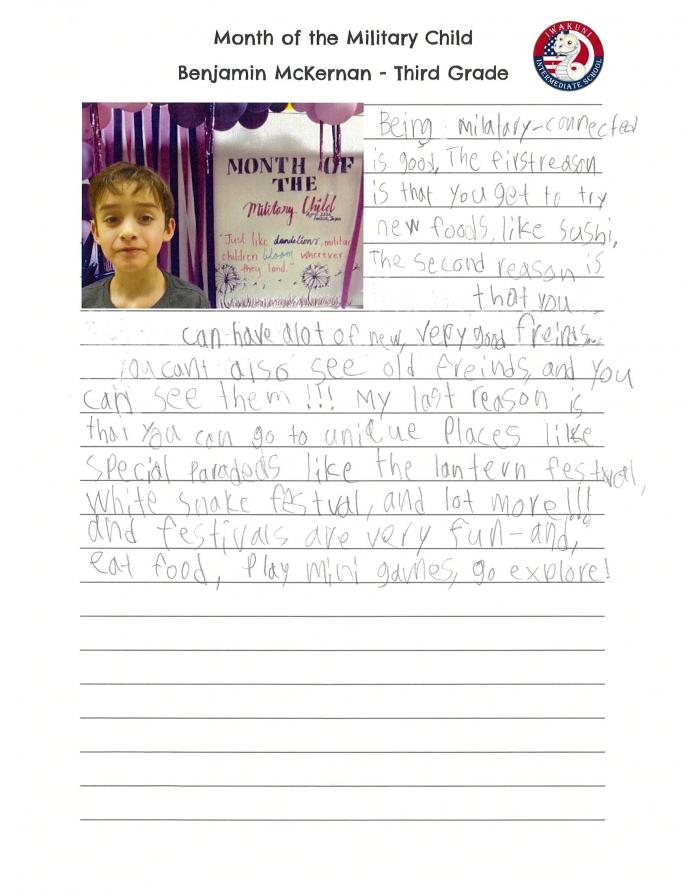 Month of the Military Child
Benjamin McKernan - Third Grade
IWAKUNI
INTERMEDIATE SCHOOL
MONTH OF
THE
Military Child
"Just like dandelions, military
children bloom wherever
they land."
Being milatary-connected
is good, The first reason
is that you get to try
new foods, like sushi,
The second reason is
that you
can have alot of new, very good freinds
you cant also see old freinds, and you
can see them!!! My last reason is
that you can go to unique places like
special parades like the lantern festval,
white snake festval, and lot more!!!
and festivals are very fun-and,
eat food, Play mini games, go explore!